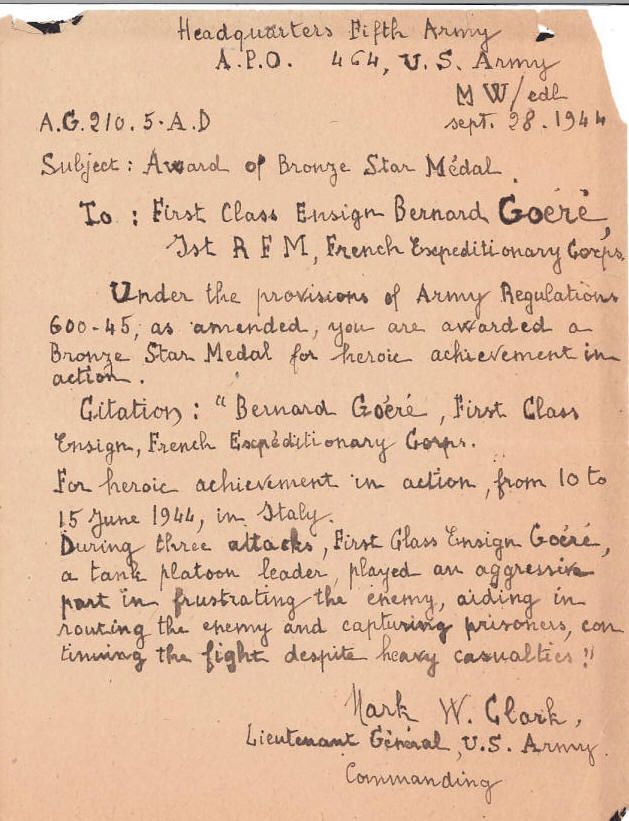 Headquarters Fifth Army
A.P.O. 464, U.S. Army
MW/edl
A.G.210.5-A.D
sept. 28.1944
Subject : Award of Bronze Star Médal.
To : First Class Ensign Bernard Goéré,
1st R F M, French Expeditionary Corps.
Under the provisions of Army Regulations
600-45, as amended, you are awarded a
Bronze Star Medal for heroic achievement in
action.
Citation : "Bernard Goéré, First Class
Ensign, French Expéditionary Corps.
For heroic achievement in action, from 10 to
15 June 1944, in Italy.
During three attacks, First Class Ensign Goéré,
a tank platoon leader, played an aggressive
part in frustrating the enemy, aiding in
routing the enemy and capturing prisoners, con
tinuing the fight despite heavy casualties!"
Mark W. Clark,
Lieutenant Général, U.S. Army.
Commanding